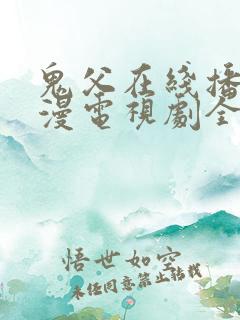 鬼父在綫播
漫電視劇全
悟世如空
未经同意禁止转载